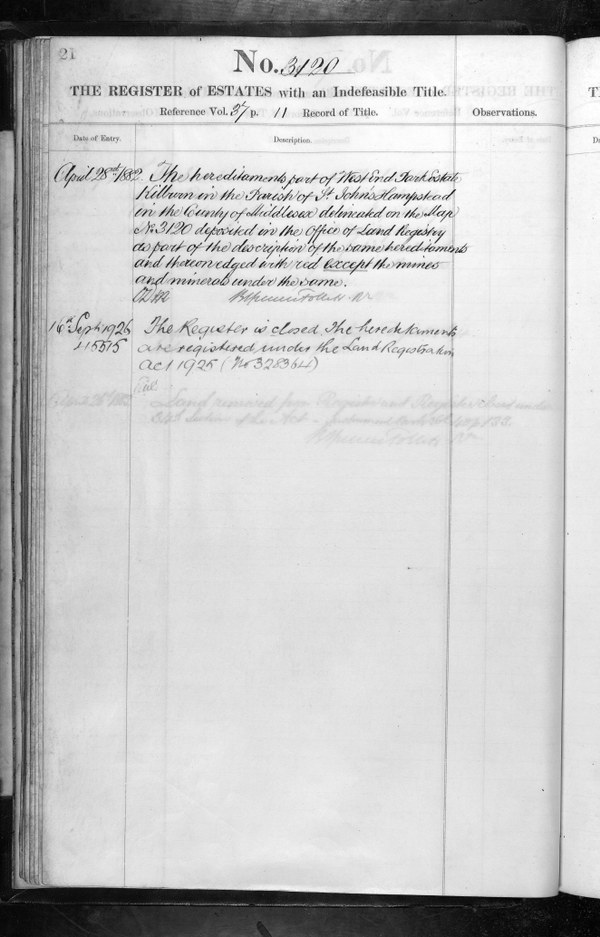 21
No. 3120
THE REGISTER of ESTATES with an Indefeasible Title.
Reference Vol. 37 p. 11 Record of Title.
Observations.
Date of Entry.
Description.
April 28th 1882. The hereditaments part of West End Park Estate
Kilburn in the Parish of St. John's Hampstead
in the County of Middlesex delineated on the Map
No. 3120 deposited in the Office of Land Registry
as part of the description of the same hereditaments
and thereon edged with red except the mines
and minerals under the same.
16th Sept 1926 The Register is closed The hereditaments
45515 are registered under the Land Registration
Act 1925 (No 328364)